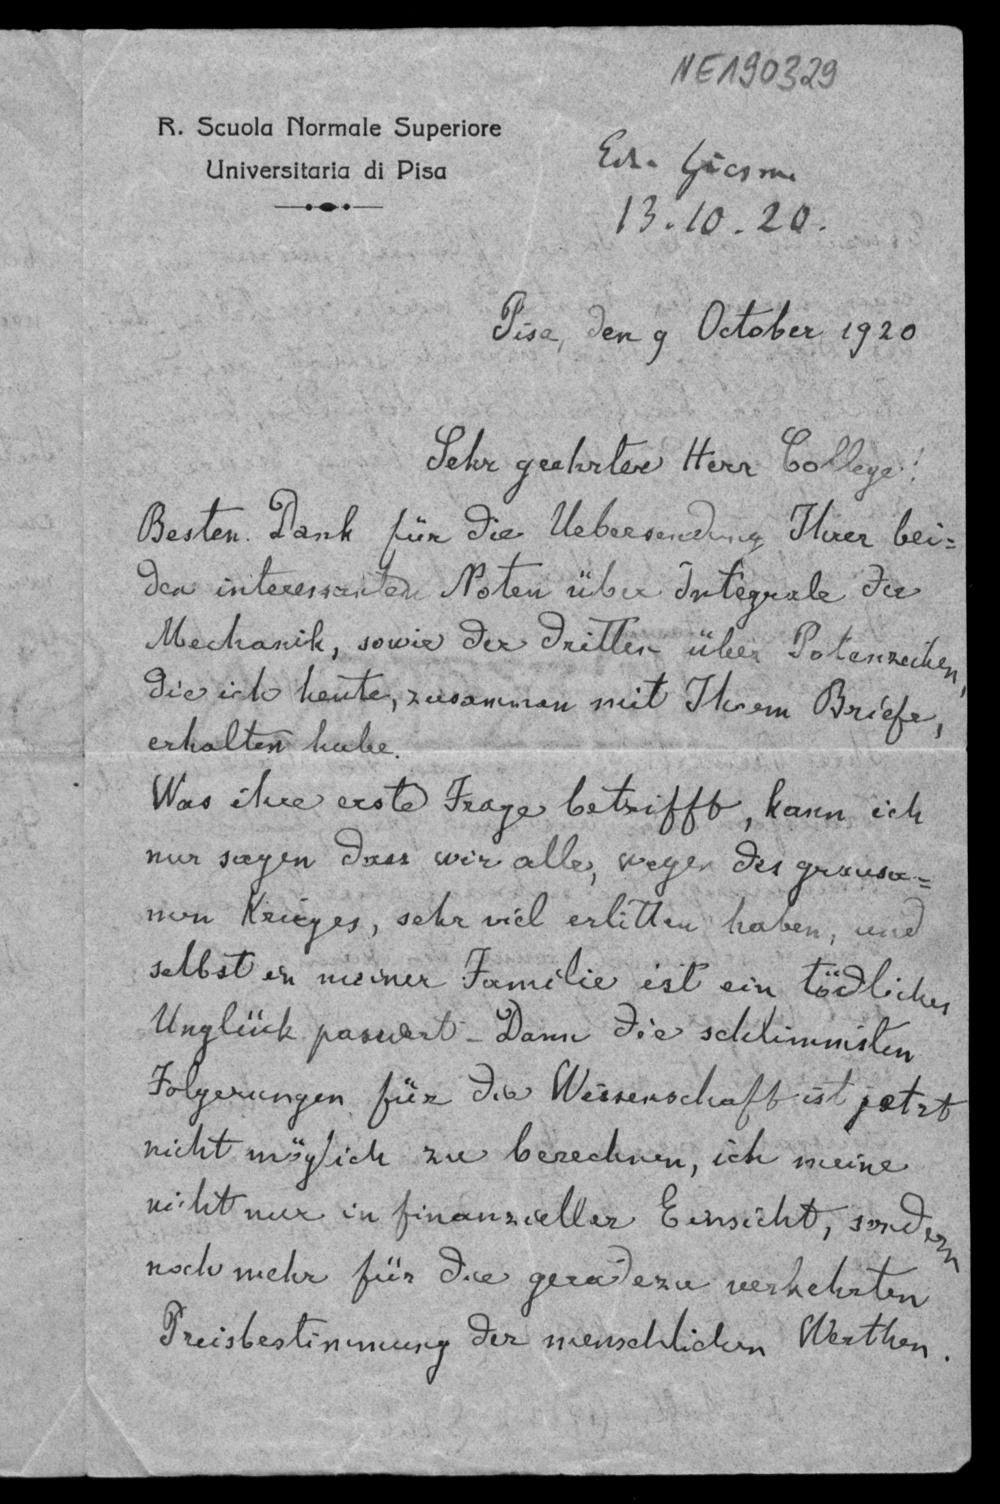 NE190329
R. Scuola Normale Superiore
Universitaria di Pisa
13.10.20.
Pisa, den 9 October 1920
Sehr geehrter Herr College!
Besten Dank für die Uebersendung Ihrer bei=
den interessanten Noten über Integrale der
Mechanik, sowie der dritten über Potenzreihen,
die ich heute, zusamman mit Ihrem Briefe,
erhalten habe.
Was ihre erste Frage betrifft, kann ich
nur sagen dass wir alle, wegen des grausa=
men Krieges, sehr viel erlitten haben, und
selbst in meiner Familie ist ein tödliches
Unglück passiert – Dann die schlimmsten
Folgerungen für die Wissenschaft ist jetzt
nicht möglich zu berechnen, ich meine
nicht nur in finanzieller Einsicht, sondern
noch mehr für die geradezu verkehrten
Preisbestimmung der menschlichen Werthen.